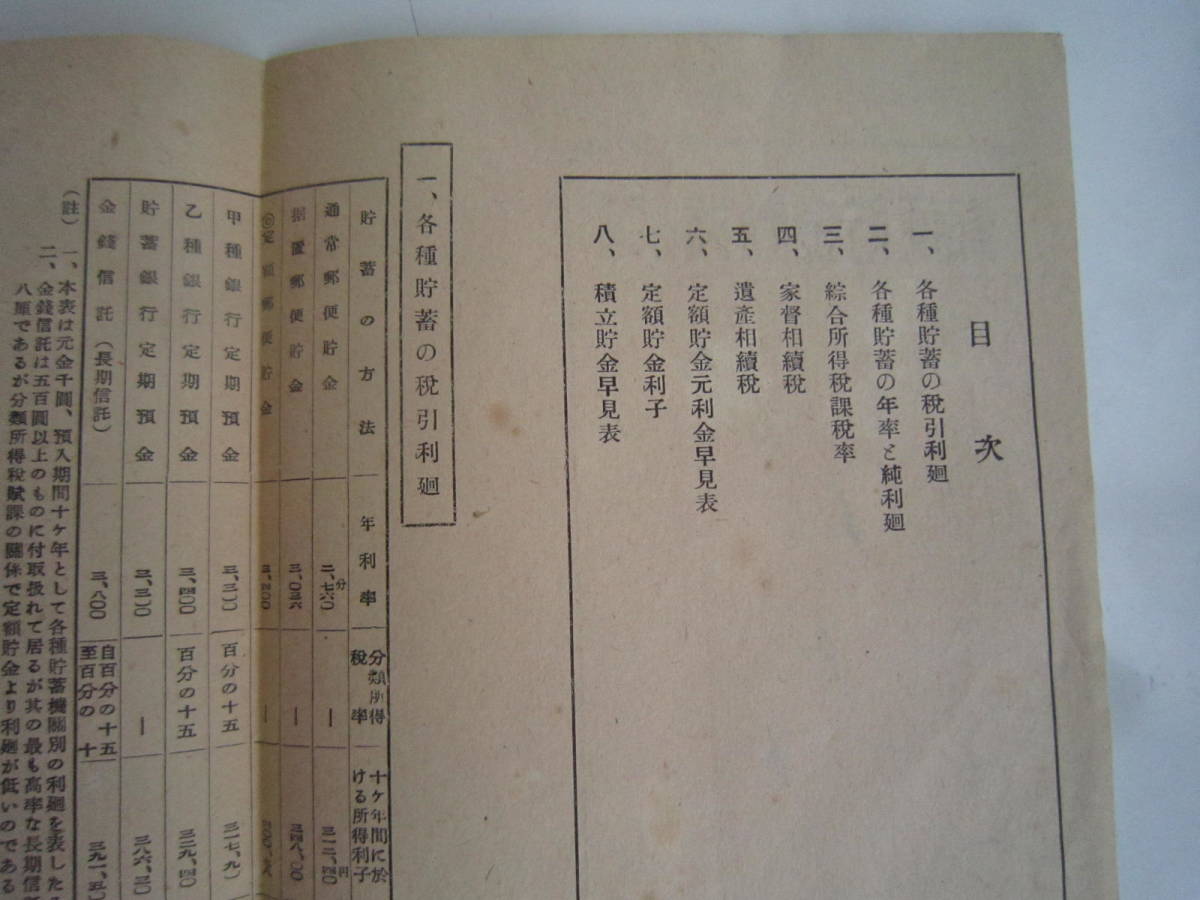 目次
一、各種貯蓄の税引利廻
二、各種貯蓄の年率と純利廻
三、綜合所得税課税率
四、家督相續税
五、遺產相續税
六、定額貯金元利金早見表
七、定額貯金利子
八、積立貯金早見表
一、各種貯蓄の税引利廻
貯蓄の方法 年利率 分類所得税率 十ケ年間に於ける所得利子
通常郵便貯金 二、七六〇分 ー 三一二、四〇円
据置郵便貯金 三、〇三六 ー 三四八、〇〇
定額郵便貯金 三、四〇〇 ー
甲種銀行定期預金 三、三〇〇 百分の十五 三一七、九〇
乙種銀行定期預金 三、四〇〇 百分の十五 三二九、四〇
貯蓄銀行定期預金 三、三〇〇 ー 三八六、三〇
金錢信託(長期信託) 三、八〇〇 自百分の十五至百分の十 三九一、五〇
(註) 一、本表は元金千圓、預入期間十ケ年として各種貯蓄機關別の利廻を表した
二、金錢信託は五百圓以上のものに付取扱れて居るが其の最も高率な長期信
八厘であるが分類所得税賦課の關係で定額貯金より利廻が低いのである